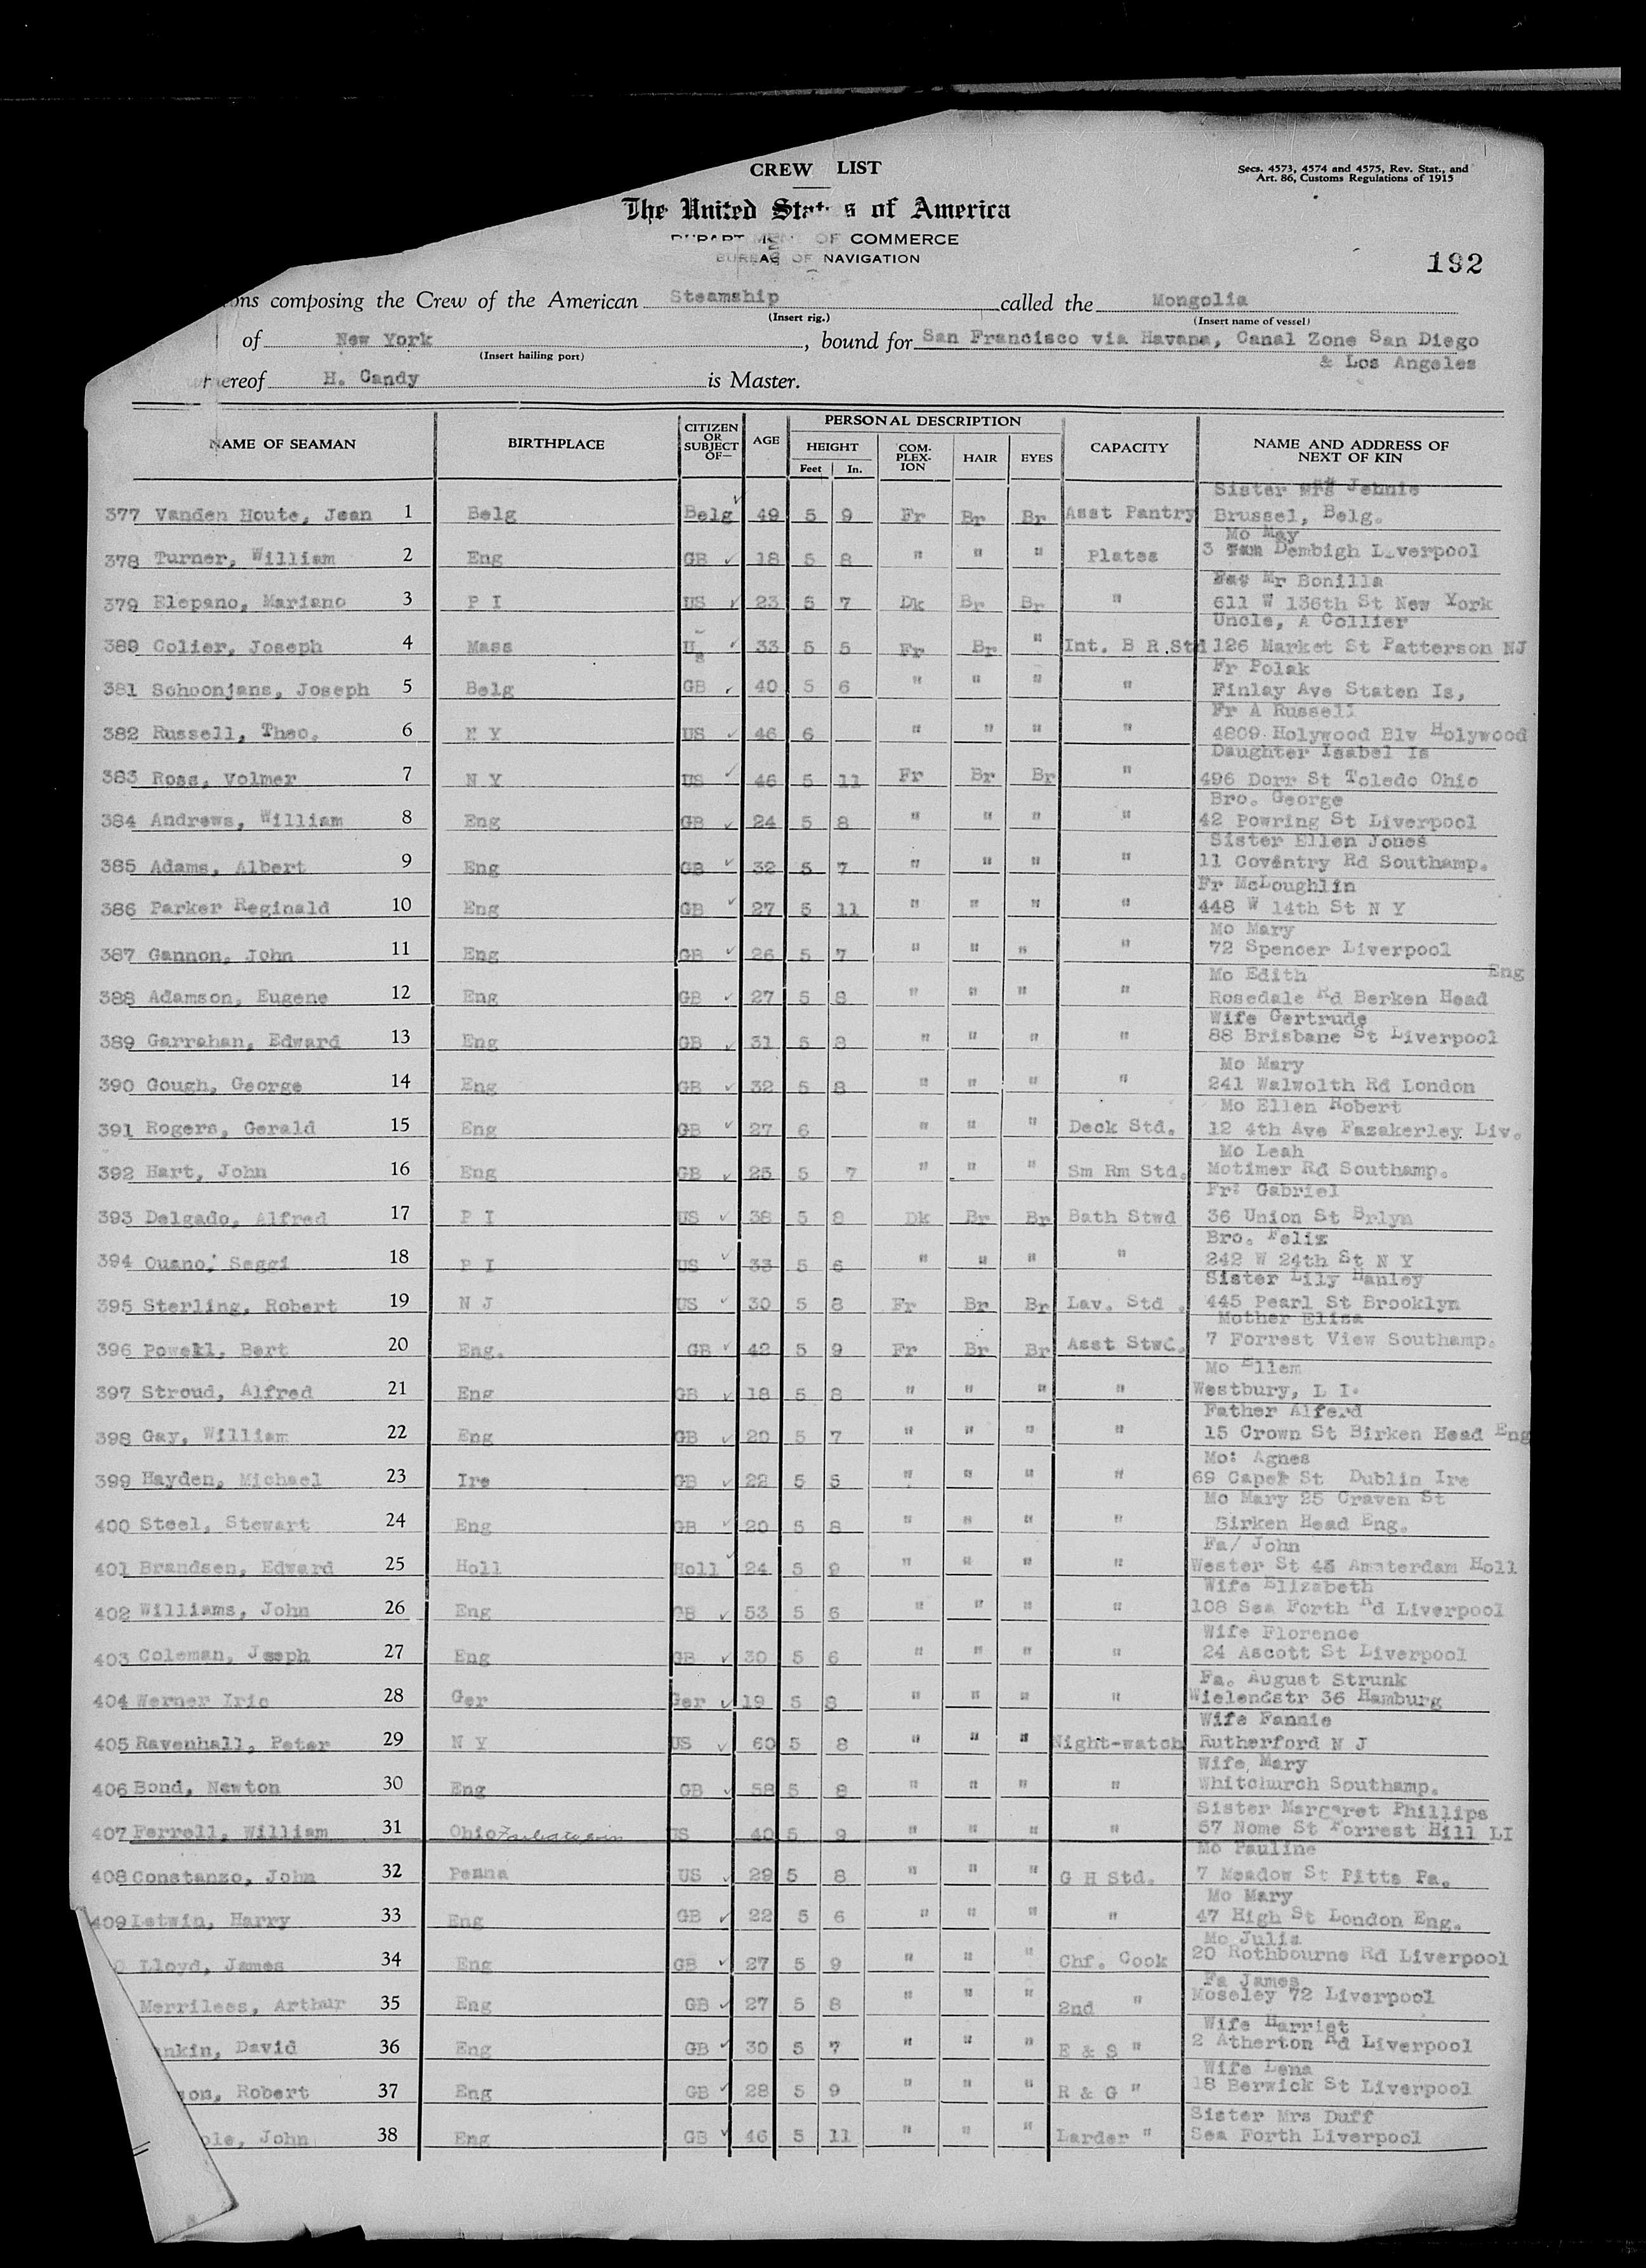 CREW LIST
Secs. 4573, 4574 and 4575, Rev. Stat., and
Art. 86, Customs Regulations of 1915
The United States of America
DEPARTMENT OF COMMERCE
BUREAU OF NAVIGATION
192
ons composing the Crew of the American Steamship called the Mongolia
(Insert rig.) (Insert name of vessel)
of New York, bound for San Francisco via Havana, Canal Zone San Diego
(Insert hailing port) & Los Angeles
hereof H. Candy is Master.
NAME OF SEAMAN BIRTHPLACE CITIZEN OR SUBJECT OF— AGE PERSONAL DESCRIPTION CAPACITY NAME AND ADDRESS OF NEXT OF KIN
HEIGHT COM-PLEX-ION HAIR EYES
Feet In.
Sister Mrs Jennie
377 Vanden Houte, Jean 1 Belg Belg 49 5 9 Fr Br Br Asst Pantry Brussel, Belg.
Mo May
378 Turner, William 2 Eng GB 18 5 8 " " " Plates 3 Dembigh Liverpool
Mr Bonilla
379 Elepano, Mariano 3 P I US 23 5 7 Dk Br Br " 611 W 136th St New York
Uncle, A Collier
389 Colier, Joseph 4 Mass Us 33 5 5 Fr Br " Int. B R.Std 126 Market St Patterson NJ
Fr Polak
381 Schoonjans, Joseph 5 Belg GB 40 5 6 " " " " Finlay Ave Staten Is,
Fr A Russell
382 Russell, Theo. 6 N Y US 46 6 " " " " 4809 Holywood Blv Holywood
Daughter Isabel Is
383 Ross, Volmer 7 N Y US 46 5 11 Fr Br Br " 496 Dorr St Toledo Ohio
Bro. George
384 Andrews, William 8 Eng GB 24 5 8 " " " " 42 Powring St Liverpool
Sister Ellen Jones
385 Adams, Albert 9 Eng GB 32 5 7 " " " " 11 Coventry Rd Southamp.
Fr McLoughlin
386 Parker Reginald 10 Eng GB 27 5 11 " " " " 448 W 14th St N Y
Mo Mary
387 Gannon, John 11 Eng GB 26 5 7 " " " " 72 Spencer Liverpool
Mo Edith Eng
388 Adamson, Eugene 12 Eng GB 27 5 8 " " " " Rosedale Rd Berken Head
Wife Gertrude
389 Garrahan, Edward 13 Eng GB 31 5 8 " " " " 88 Brisbane St Liverpool
Mo Mary
390 Gough, George 14 Eng GB 32 5 8 " " " " 241 Walwolth Rd London
Mo Ellen Robert
391 Rogers, Gerald 15 Eng GB 27 6 " " " Deck Std. 12 4th Ave Fazakerley Liv.
Mo Leah
392 Hart, John 16 Eng GB 25 5 7 " " " Sm Rm Std. Motimer Rd Southamp.
Fr: Gabriel
393 Delgado, Alfred 17 P I US 38 5 8 Dk Br Br Bath Stwd 36 Union St Brlyn
Bro. Felix
394 Ouano, Seggi 18 P I US 33 5 6 " " " " 242 W 24th St N Y
Sister Lily Hanley
395 Sterling, Robert 19 N J US 30 5 8 Fr Br Br Lav. Std . 445 Pearl St Brooklyn
Mother Eliza
396 Powell, Bert 20 Eng. GB 42 5 9 Fr Br Br Asst Stwd. 7 Forrest View Southamp.
Mo Ellem
397 Stroud, Alfred 21 Eng GB 18 5 8 " " " " Westbury, L I.
Father Alferd
398 Gay, William 22 Eng GB 20 5 7 " " " " 15 Crown St Birken Head Eng
Mo: Agnes
399 Hayden, Michael 23 Ire GB 22 5 5 " " " " 69 Caper St Dublin Ire
Mo Mary 25 Craven St
400 Steel, Stewart 24 Eng GB 20 5 8 " " " " Birken Head Eng.
Fa/ John
401 Brandsen, Edward 25 Holl Holl 24 5 9 " " " " Wester St 45 Amsterdam Holl
Wife Elizabeth
402 Williams, John 26 Eng GB 53 5 6 " " " " 108 Sea Forth Rd Liverpool
Wife Florence
403 Coleman, Jseph 27 Eng GB 30 5 6 " " " " 24 Ascott St Liverpool
Fa. August Strunk
404 Werner Iric 28 Ger Ger 19 5 8 " " " " Wielendstr 36 Hamburg
Wife Fannie
405 Ravenhall, Peter 29 N Y US 60 5 8 " " " Night-watch Rutherford N J
Wife Mary
406 Bond, Newton 30 Eng GB 58 5 8 " " " " Whitchurch Southamp.
Sister Margaret Phillips
407 Ferrell, William 31 Ohio US 40 5 9 " " " " 57 Nome St Forrest Hill LI
Mo Pauline
408 Constanzo, John 32 Penna US 29 5 8 " " " G H Std. 7 Meadow St Pitts Pa.
Mo Mary
409 Letwin, Harry 33 Eng GB 22 5 6 " " " " 47 High St London Eng.
Mo Julia
0 Lloyd, James 34 Eng GB 27 5 9 " " " Chf. Cook 20 Rothbourne Rd Liverpool
Fa James
Merrilees, Arthur 35 Eng GB 27 5 8 " " " 2nd " Moseley 72 Liverpool
Wife Harriet
nkin, David 36 Eng GB 30 5 7 " " " E & S " 2 Atherton Rd Liverpool
Wife Lena
son, Robert 37 Eng GB 28 5 9 " " " R & G " 18 Berwick St Liverpool
Sister Mrs Duff
ole, John 38 Eng GB 46 5 11 " " " Larder " Sea Forth Liverpool